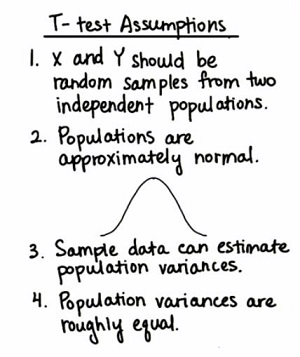 T-test Assumptions
1. X and Y should be
random samples from two
independent populations.
2. Populations are
approximately normal.
3. Sample data can estimate
population variances.
4. Population variances are
roughly equal.